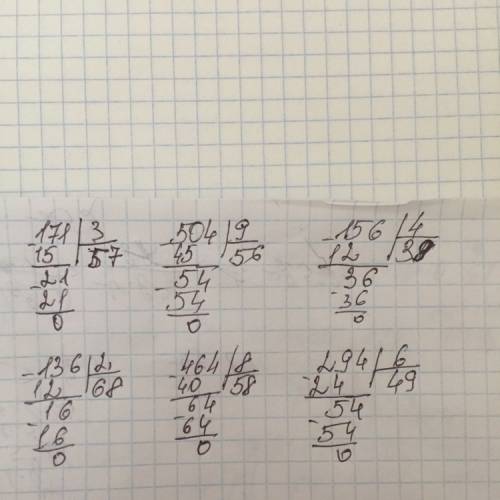 -171|3 -504|9 -156|4
15 57 45 56 12 39
-21 -54 36
21 54 -36
0 0 0
-136|2 -464|8 -294|6
12 68 40 58 24 49
-16 -64 54
16 64 -54
0 0 0